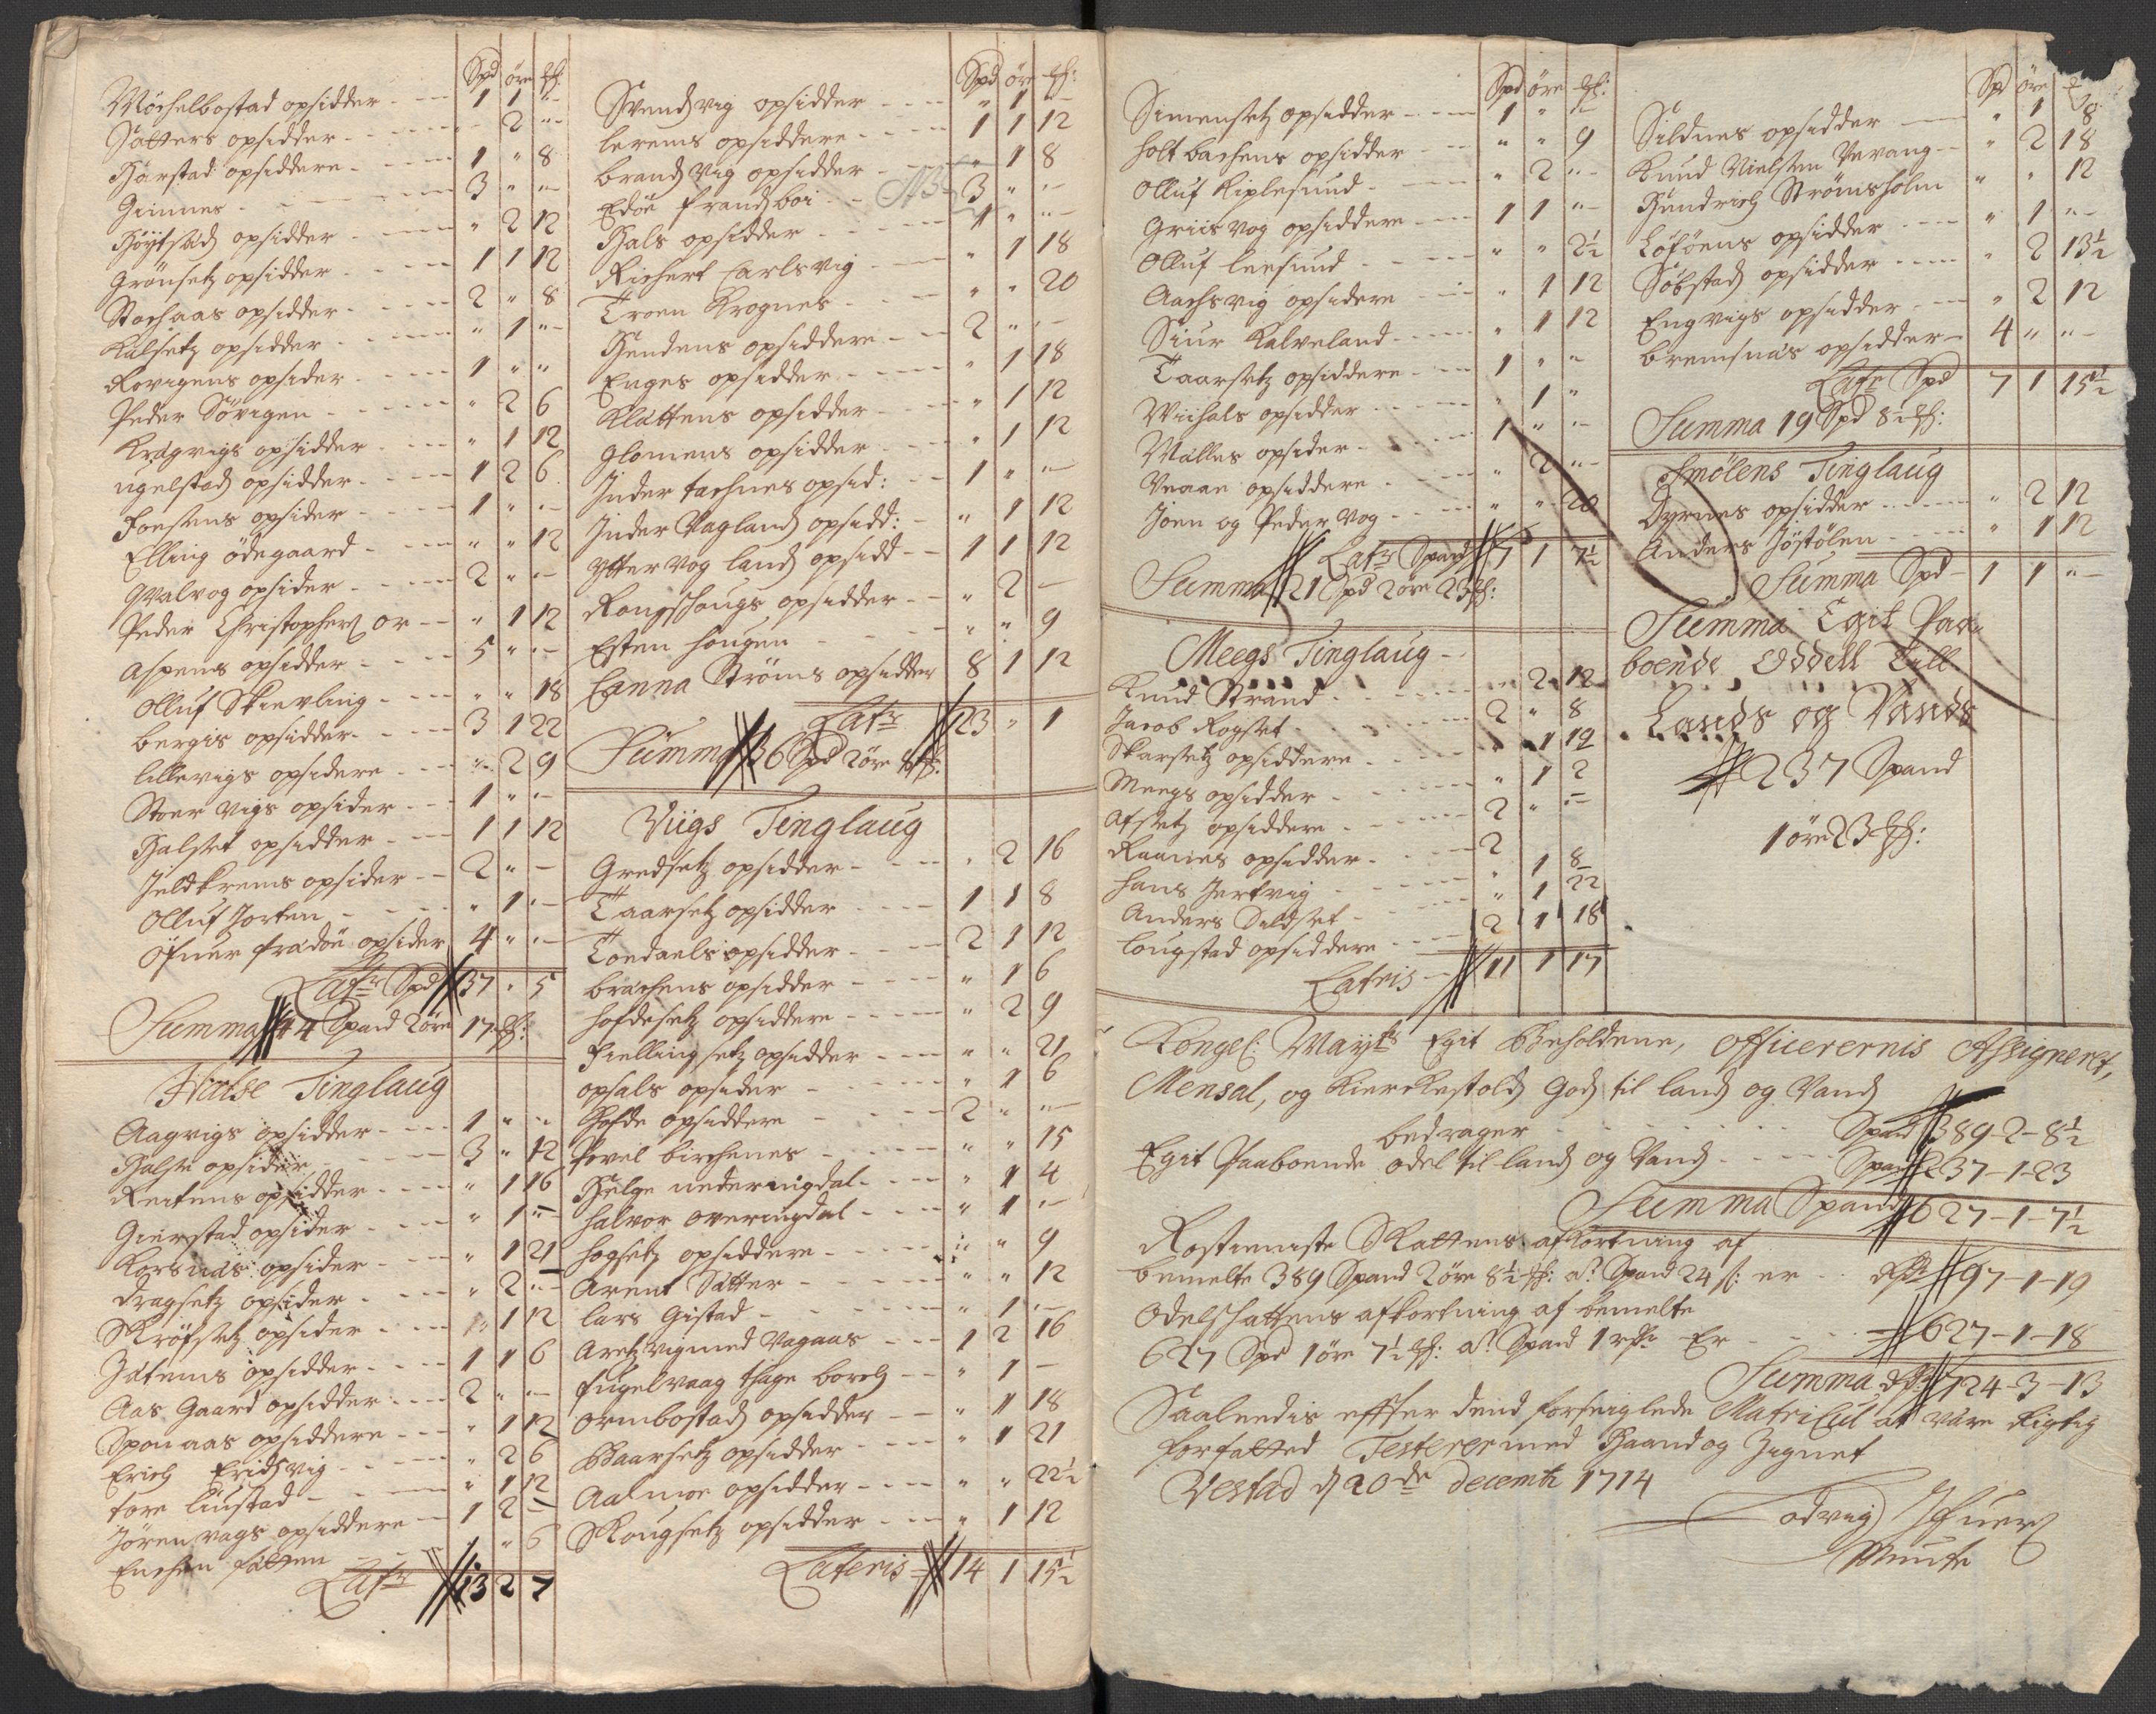 Spd öre
Möchelbostad opsidder 1 1 "
Sætters opsidder 2 "
Harstad opsiddere 1 " 8
Ginnes 3 " "
Höytsæd opsidder " 2 12
Grönsetz opsidder 1 1 12
Stochaas opsidder 2 " 8
Kulsetz opsidder " 1 "
Rovigens opsider 1 " "
Peder Sörigen " 2 6
Krægvigs opsidder " 1 12
ugelstad opsidder 1 2 6
Foessens opsider 1 " "
Elling ödegaard " " 12
Qvalvog opsider 2 " "
Peder Christophers or " 1 12
Aspens opsidder 5 " "
Olluf Skievling " " 18
bergis opsidder 3 1 22
lillevigs opsidere " 2 9
Stoer vigs opsider 1 " "
Halset opsidder 1 1 12
Jeldkrems opsider 2 " "
Olluf Jorten " 1 "
Öfner fradöe opsider 4 " "
Latr Spd 37 " 5
Summa 44 Spand 2 öre 17
Halse Tinglaug
Aagvigs opsidder 1 " "
Halse opsider 3 " 12
Reitens opsidder " 1 16
Gierstad opsider " 1 "
Korsnæs opsider " 1 21
Dragsetz opsider " 2 "
Skröfsetz opsider " 1 12
Jætems opsidder 1 1 6
Aas Gaard opsidder 2 " "
Sponaas opsiddere " 1 12
Erich Eridsvig " 2 6
Tore liustad " 1 12
Jören vags opsiddere 1 2 "
Enchen Fætten " 6
Latr 13 2 7
Spd öre
Svendvig opsidder " 1 "
lerems opsiddere 1 1 12
brandvig opsidder " 1 8
Edöe frandboi NB 3 " "
Hals opsidder 1 " "
Richert Carlsvig " 1 18
Troen Krognes " " 20
Hendens opsiddere 2 " "
Enges opsidder " 1 18
Klættens opsidder " 1 12
Glomens opsidder " 1 12
Inder tachnes opsid: 1 " "
Inder Vagland opsidd: " 1 12
ytter Vog land opsidd 1 1 12
Rongshougs opsidder " 2 "
Esten hougen " " 9
Canna Ströms opsidder 8 1 12
Latr 23 " 1
Summa 36 Spd 2 öre 8
Viigs Tinglaug
Gredsetz opsidder " 2 16
Taarsetz opsidder 1 1 8
Toedaels opsidder 2 1 12
bræchens opsidder " 1 6
hofdesetz opsiddere " 2 9
Fiellingsetz opsidder " " 21
opsals opsider " 1 6
Hofde opsiddere 2 " "
Povel birchenes " " 15
Helge nederingdal " 1 4
halvor overingdal " 1 "
hogsetz opsiddere " " 9
Arent Sætter " " 12
lars Gistad " 1 "
Aretzvig med Vagaas 1 2 16
Fugelvaag thage borch " 1 "
ormbostad opsidder " 1 18
Baarsetz opsidder " 1 21
Aalmoe opsidder " " 22½
Skougsetz opsidder " 1 12
Lateris 14 1 15½
Spd öre
Simensetz opsidder 1 " "
holtbachens opsidder " " 9
Olluf Kiplesund " 2 "
Griisvog opsiddere 1 1 "
Olluf leesund " " 2½
Aachsvig opsidere " 1 12
Siur Kalveland " 1 12
Taarsetz opsiddere 1 " "
Wiihals opsidder " 1 "
Mælles opsider 1 " "
Veaae opsiddere " 2 "
Joen og Peder Vog " " 20
Latr Spand 7 1 7½
Summa 21 Spd 2 öre 23
Meegs Tinglaug
Knud Strand " 2 12
Jacob Rogset 2 " 8
Skarsetz opsiddere " 1 12
Meegs opsidder " 1 2
Afsetz opsiddere 2 " "
Raanes opsidder 2
hans Jertvig " 1 8
Anders Sildset " 1 22
Lougstad opsiddere 2 1 18
Latris 11 1 17
Spd öre
Sildnes opsidder " 1 8
Knud Nielsen Vevang " 2 18
Hendrich Strömsholm " " 12
Löföens opsidder " 1 "
Söbstad opsidder " 2 13½
Engvigs opsidder " 2 12
bremsnæs opsidder 4 " "
Latr Spd 7 1 15½
Summa 19 Spd 8½
Smölens Tinglaug
Dyrnes opsidder " 2 12
Anders Jöstölen " 1 12
Summa Spd 1 1 "
Summa Egit Paa-
boende Oddell till
Lands og Vands
237 Spand
1 öre 23
Kongel: Mayts Egit Beholdene, Officerernis Assigneret,
Mensal, og Kierckestold God til land og Vand
bedrager Spand 389-2-8½
Egit Paaboende odel til land og Vand Spand 237-1-23
Summa Spand 627-1-7½
Rostieniste Skattens afkortning af
bemelte 389 Spand 2 öre 8½ a Spand 24 s: er 97-1-19
Odelskattens afkortning af bemelte
627 Spd 1 öre 7½ a Spand 1 rdr Er 627-1-18
Summa 724-3-13
Saaledis effter dend forseiglede Matricul at være Rigtig
forfatted Testerer med Haand og Zignet
Vestad d 20de decemb 1714
Lodvig
Munthe